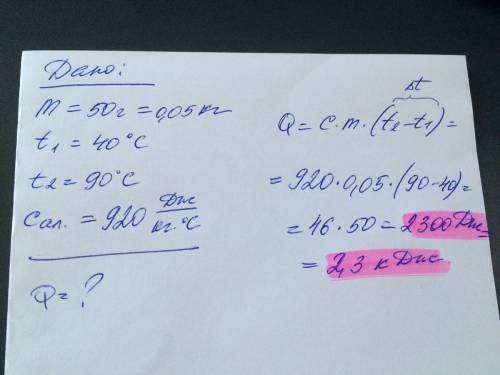 Дано:
m = 50 г = 0,05 кг
t₁ = 40°C
t₂ = 90°C
Cал. = 920 Дж/кг·°C
Q = ?
Δt
Q = c·m·(t₂-t₁) =
= 920·0,05·(90-40) =
= 46·50 = 2300 Дж =
= 2,3 кДж